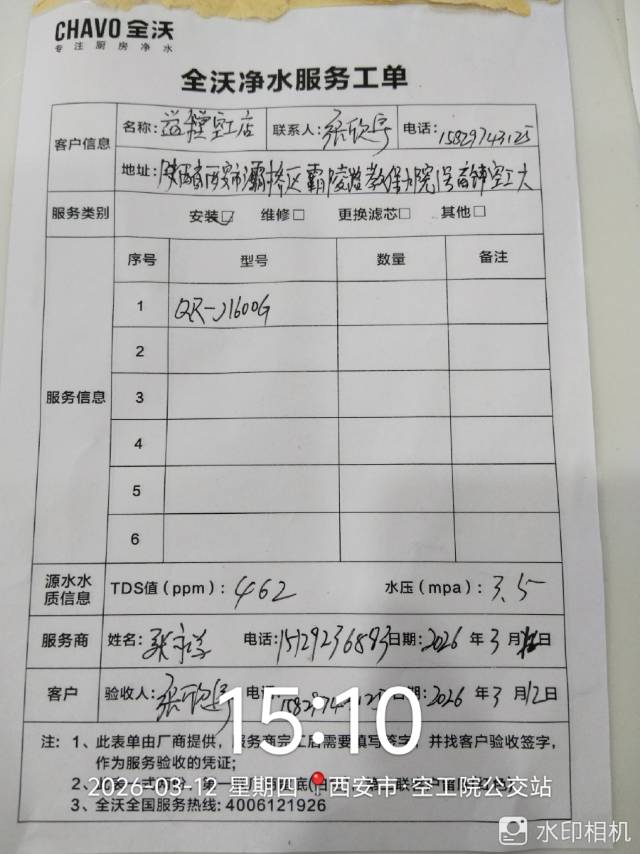 CHAVO 全沃
专注厨房净水
全沃净水服务工单
客户信息
名称: 益禾堂空工店 联系人: 张欣宇 电话: 15829743125
地址: 陕西省西安市灞桥区霸陵路 空工大
服务类别 安装☑ 维修□ 更换滤芯□ 其他□
服务信息
序号 型号 数量 备注
1 QR-J1600G
2
3
4
5
6
源水水质信息 TDS值(ppm): 462 水压(mpa): 3.5
服务商 姓名: 电话: 15129236893 日期: 2026 年 3 月 日
客户 验收人: 张欣宇 电话: 日期: 2026 年 3 月 12 日
注: 1、此表单由厂商提供,服务商完工后需要填写签字,并找客户验收签字,
作为服务验收的凭证;
2、
3、全沃全国服务热线: 4006121926
15:10
2026-03-12 星期四 西安市·空工院公交站
水印相机